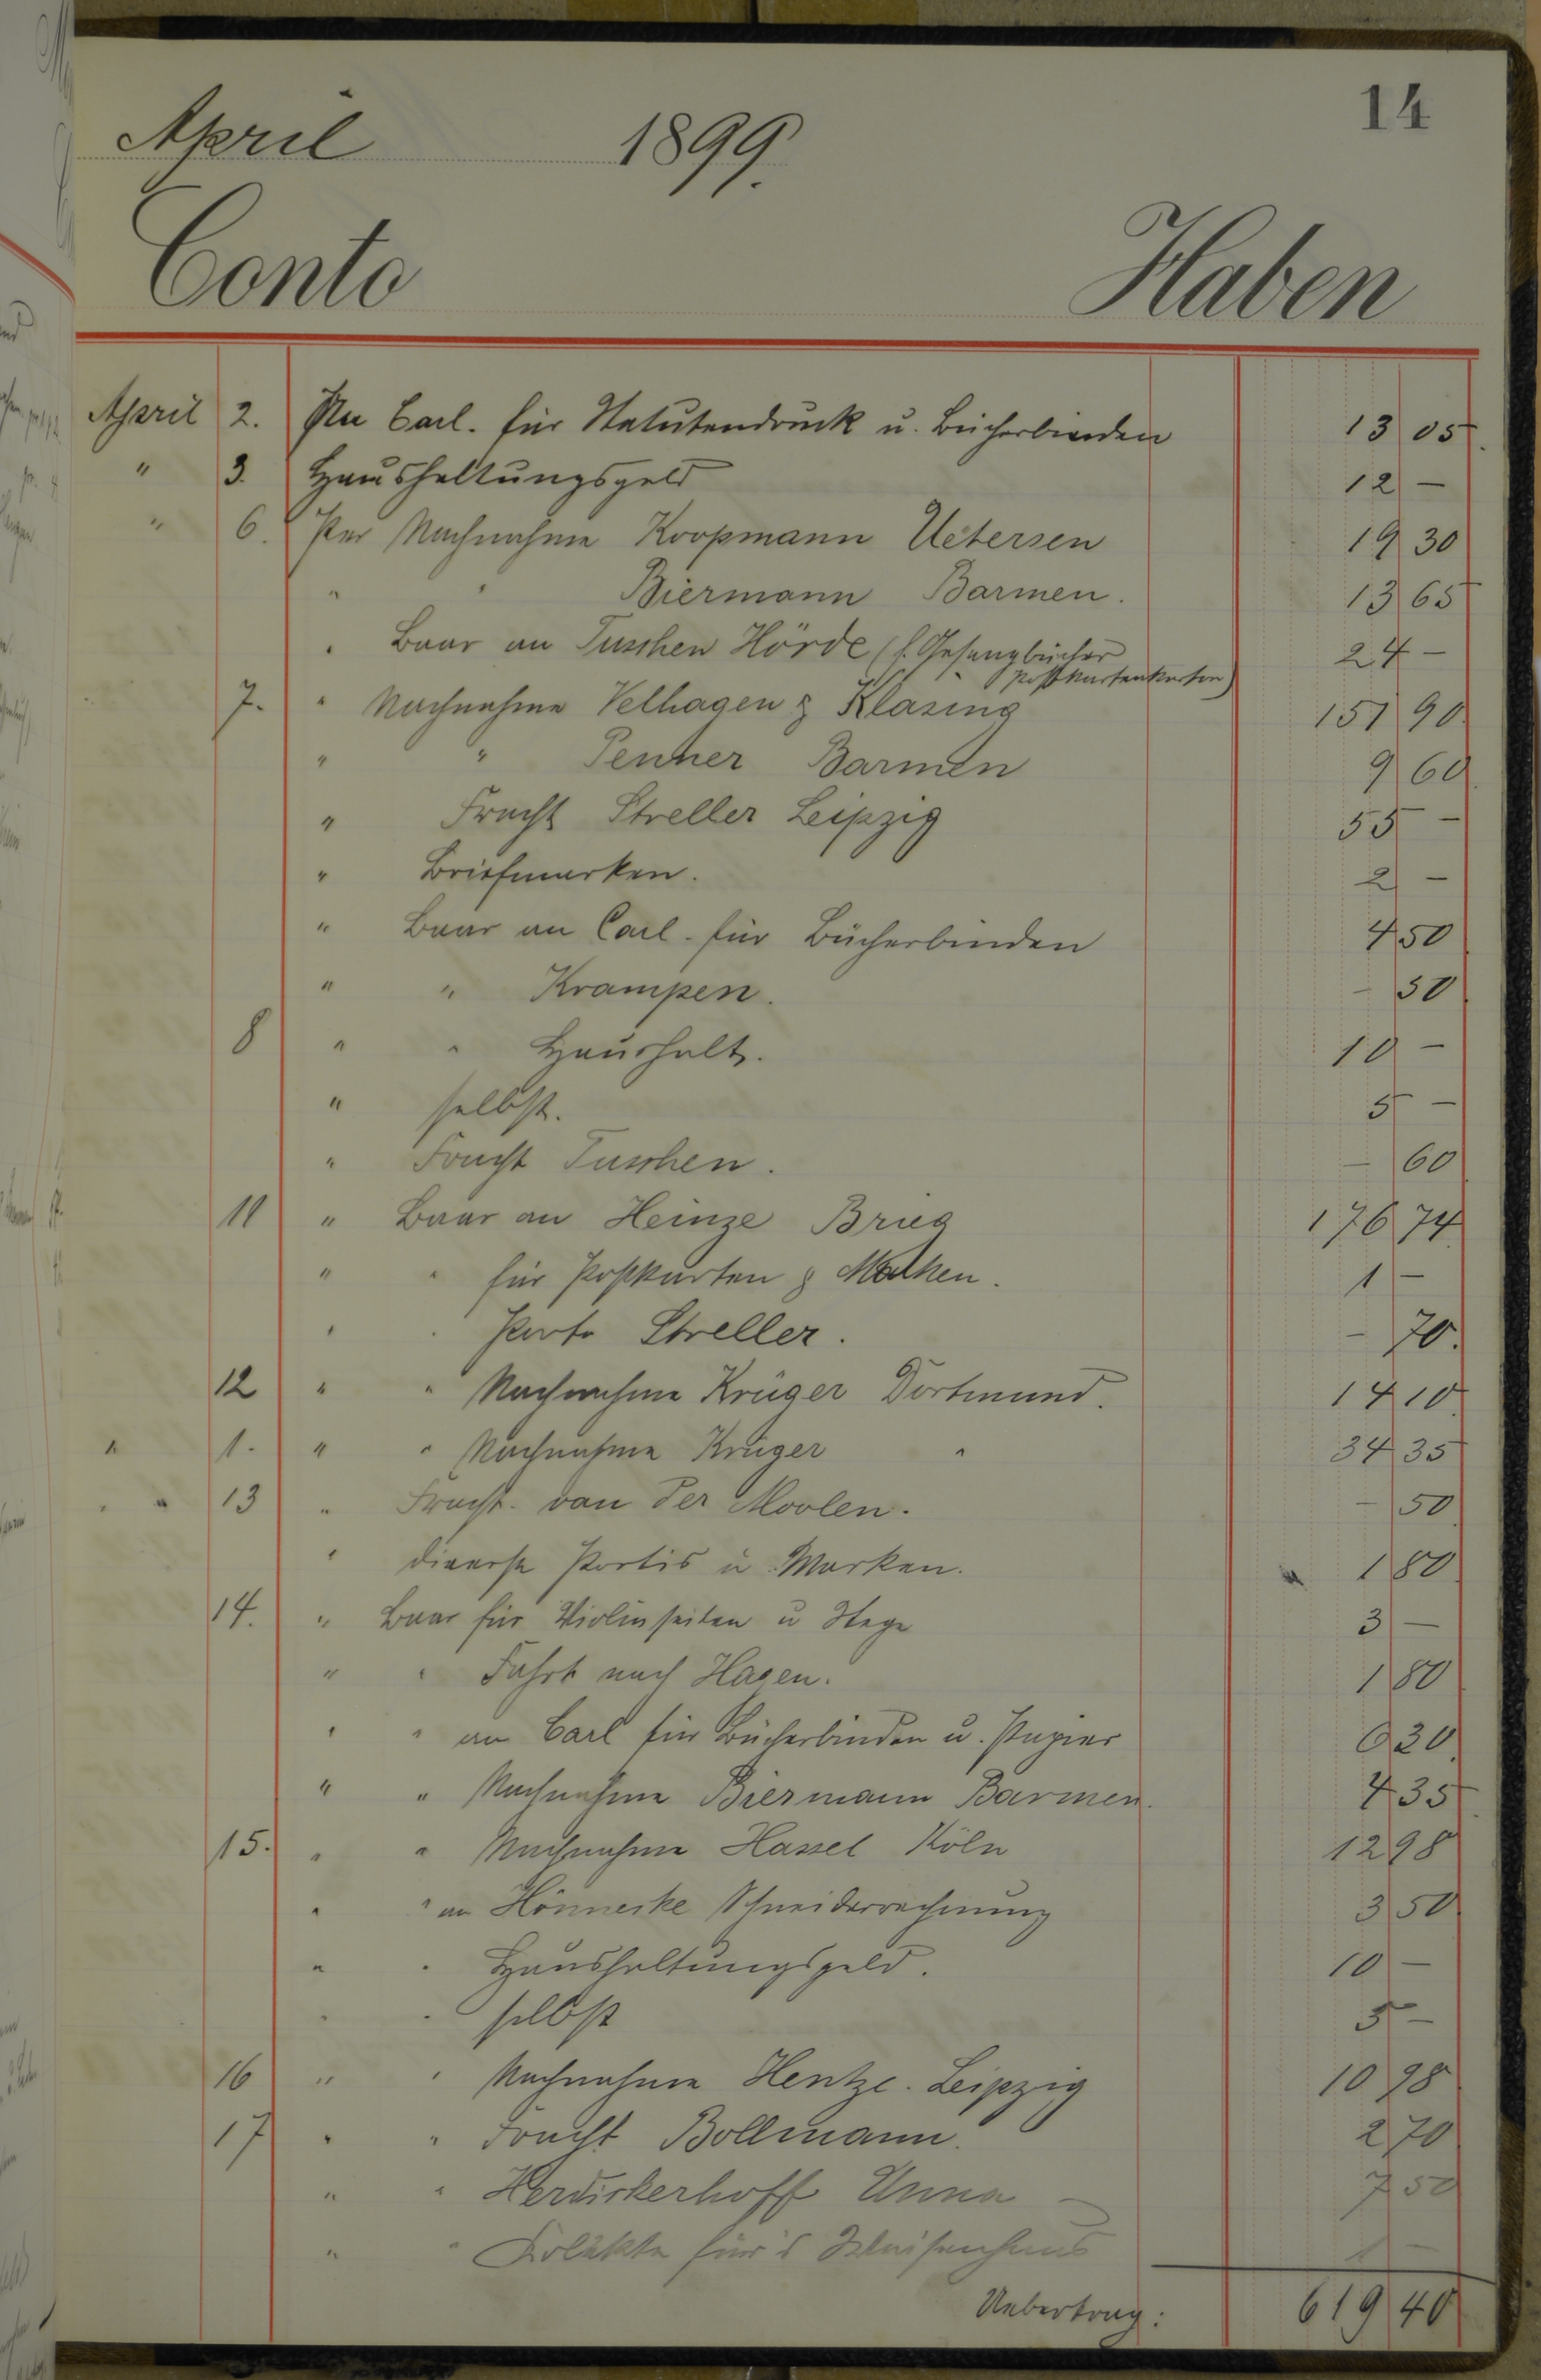 14
April 1899.
Conto Haben
April 2. An Carl. für Statutendruck u. Bücherbinden 13 05
" 3. Haushaltungsgeld 12 —
" 6. Per Nachnahme Koopmann Uetersen 19 30
" " Biermann Barmen. 13 65
" Baar an Tuschen Hörde (f. Gesangbücher 24 —
Postkartenkarton)
7. " Nachnahme Velhagen & Klasing 151 90
" " Penner Barmen 9 60
" Fracht Streller Leipzig 55 —
" Briefmarken. 2 —
" Baar an Carl. für Bücherbinden 4 50
" " Krampen. — 50
8 " " Haushalt. 10 —
" selbst. 5 —
" Fracht Tuschen. — 60
11 " Baar an Heinze Brieg 176 74
" " für Postkarten & Marken. 1 —
" " Porto Streller. — 70.
12 " " Nachnahme Krüger Dortmund. 14 10
" 1. " " Nachnahme Krüger " 34 35
" " 13 " Fracht. van der Moolen. — 50
" diverse Portis u. Marken. 1 80
14. " Baar für Violinseiten u Stege 3 —
" " Fahrt nach Hagen. 1 80
" " an Carl für Bücherbinden u. Papier 6 20
" " Nachnahme Biermann Barmen. 4 35
15. " " Nachnahme Hassel Köln 12 98
" " an Hönneske Schneiderrechnung 3 50
" " Haushaltungsgeld. 10 —
" " selbst 5 —
16 " " Nachnahme Hentze. Leipzig 10 98
17 " " Fracht Bollmann. 2 70
" " Herdickerhoff Unna — 7 50
" " Kolekte für's Waisenhaus 1 —
Uebertrag: 619 40